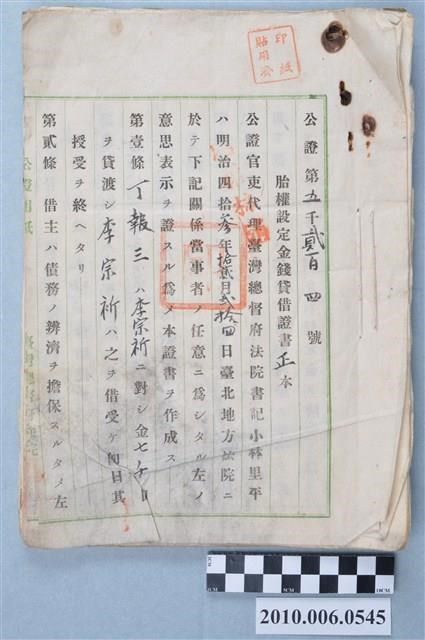 印紙
貼用濟
公證第五千貳百四號
胎權設定金錢貸借證書正本
公證官吏代理臺灣總督府法院書記小林里平
ハ明治四拾參年拾貳月貳拾四日臺北地方法院ニ
於テ下記關係當事者ノ任意ニ爲シタル左ノ
意思表示ヲ證スル爲メ本證書ヲ作成ス
第壹條 丁報三ハ李宗祈ニ對シ金七千
ヲ貸渡シ李宗祈ハ之ヲ借受ケ即日其
授受ヲ終ヘタリ
第貳條 借主ハ債務ノ辨濟ヲ擔保スルタメ左
公證用紙
2010.006.0545